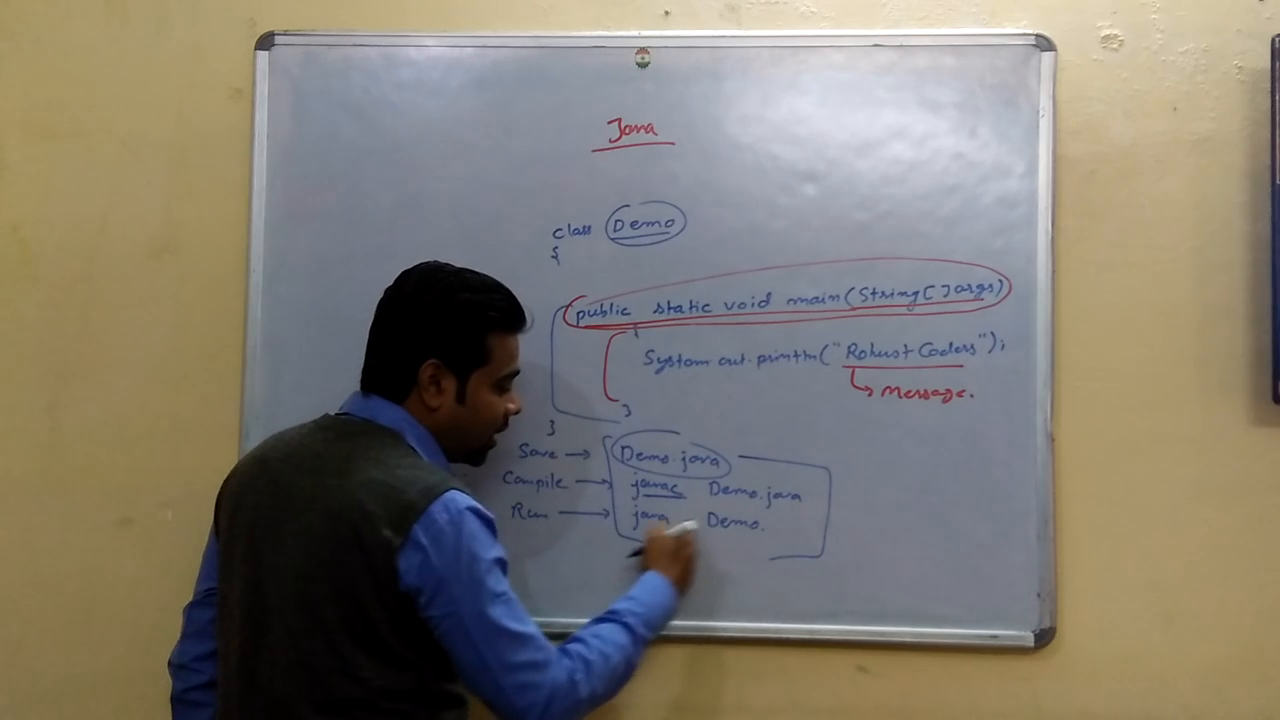 Java
class Demo
{
public static void main(String[]args)
{
System.out.println("Robust Coders");
Message.
}
}
Save → Demo.java
Compile → javac Demo.java
Run → java Demo.